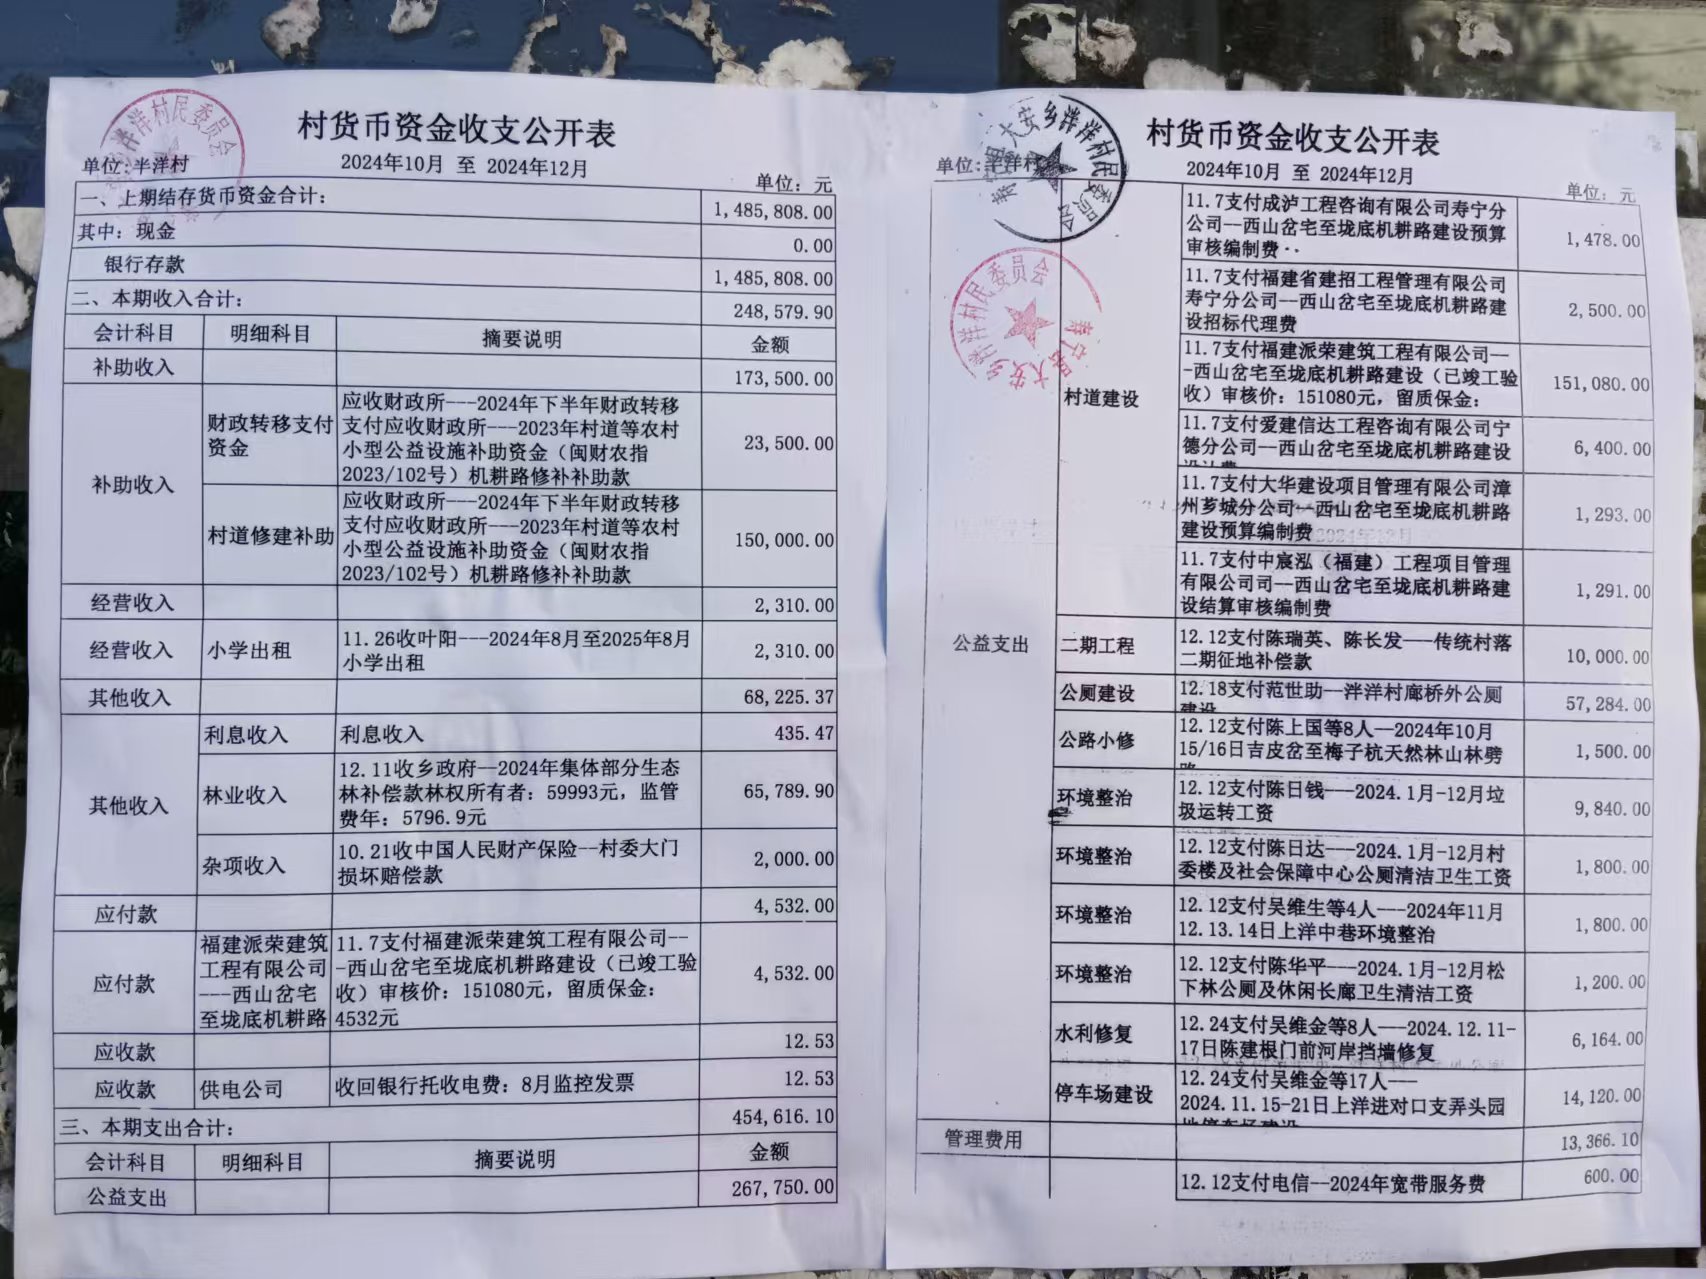 泮洋村民委员会
村货币资金收支公开表
2024年10月 至 2024年12月
单位:半洋村
单位：元
一、上期结存货币资金合计： 1,485,808.00
其中：现金 0.00
银行存款 1,485,808.00
二、本期收入合计： 248,579.90
会计科目 明细科目 摘要说明 金额
补助收入 173,500.00
补助收入 财政转移支付资金 应收财政所---2024年下半年财政转移
支付应收财政所---2023年村道等农村
小型公益设施补助资金（闽财农指
2023/102号）机耕路修补补助款 23,500.00
村道修建补助 应收财政所---2024年下半年财政转移
支付应收财政所---2023年村道等农村
小型公益设施补助资金（闽财农指
2023/102号）机耕路修补补助款 150,000.00
经营收入 2,310.00
经营收入 小学出租 11.26收叶阳---2024年8月至2025年8月
小学出租 2,310.00
其他收入 68,225.37
其他收入 利息收入 利息收入 435.47
林业收入 12.11收乡政府--2024年集体部分生态
林补偿款林权所有者：59993元，监管
费年：5796.9元 65,789.90
杂项收入 10.21收中国人民财产保险--村委大门
损坏赔偿款 2,000.00
应付款 4,532.00
应付款 福建派荣建筑工程有限公司---西山岔宅至垅底机耕路 11.7支付福建派荣建筑工程有限公司--
-西山岔宅至垅底机耕路建设（已竣工验
收）审核价：151080元，留质保金：
4532元 4,532.00
应收款 12.53
应收款 供电公司 收回银行托收电费：8月监控发票 12.53
三、本期支出合计： 454,616.10
会计科目 明细科目 摘要说明 金额
公益支出 267,750.00
大安乡泮洋村民委员会
村货币资金收支公开表
2024年10月 至 2024年12月
单位:半洋村
单位：元
大安乡泮洋村民委员会
公益支出
村道建设 11.7支付成泸工程咨询有限公司寿宁分
公司--西山岔宅至垅底机耕路建设预算
审核编制费 1,478.00
11.7支付福建省建招工程管理有限公司
寿宁分公司--西山岔宅至垅底机耕路建
设招标代理费 2,500.00
11.7支付福建派荣建筑工程有限公司--
-西山岔宅至垅底机耕路建设（已竣工验
收）审核价：151080元，留质保金： 151,080.00
11.7支付爱建信达工程咨询有限公司宁
德分公司--西山岔宅至垅底机耕路建设 6,400.00
11.7支付大华建设项目管理有限公司漳
州芗城分公司--西山岔宅至垅底机耕路
建设预算编制费 1,293.00
11.7支付中宸泓（福建）工程项目管理
有限公司司--西山岔宅至垅底机耕路建
设结算审核编制费 1,291.00
二期工程 12.12支付陈瑞英、陈长发---传统村落
二期征地补偿款 10,000.00
公厕建设 12.18支付范世助--泮洋村廊桥外公厕
建设 57,284.00
公路小修 12.12支付陈上国等8人--2024年10月
15/16日吉皮岔至梅子杭天然林山林劈 1,500.00
环境整治 12.12支付陈日钱---2024.1月-12月垃
圾运转工资 9,840.00
环境整治 12.12支付陈日达---2024.1月-12月村
委楼及社会保障中心公厕清洁卫生工资 1,800.00
环境整治 12.12支付吴维生等4人---2024年11月
12.13.14日上洋中巷环境整治 1,800.00
环境整治 12.12支付陈华平---2024.1月-12月松
下林公厕及休闲长廊卫生清洁工资 1,200.00
水利修复 12.24支付吴维金等8人---2024.12.11-
17日陈建根门前河岸挡墙修复 6,164.00
停车场建设 12.24支付吴维金等17人---
2024.11.15-21日上洋进对口支弄头园
地停车场建设 14,120.00
管理费用 13,366.10
12.12支付电信--2024年宽带服务费 600.00